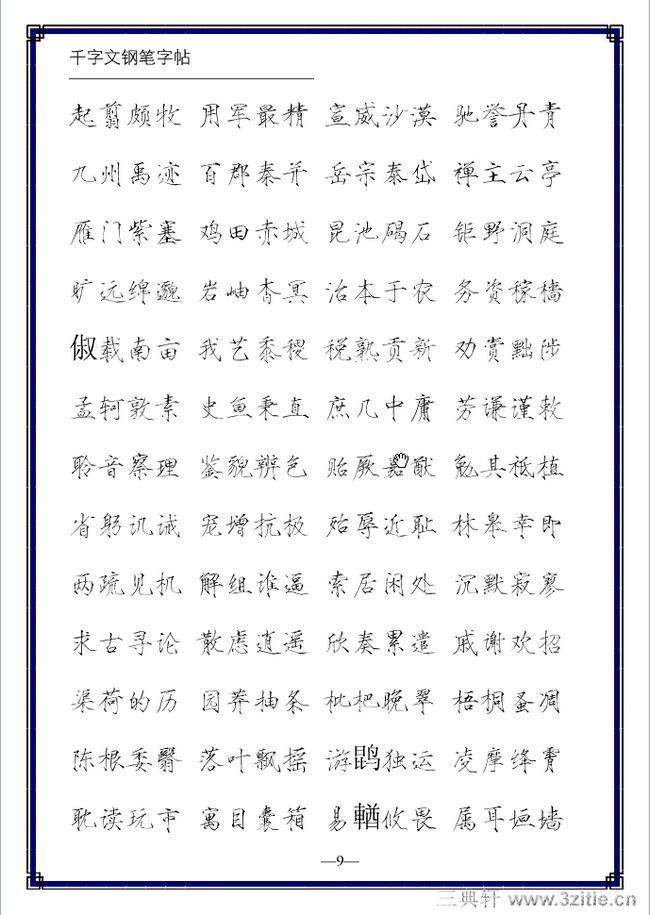 千字文钢笔字帖
起翦颇牧 用军最精 宣威沙漠 驰誉丹青
九州禹迹 百郡秦并 岳宗泰岱 禅主云亭
雁门紫塞 鸡田赤城 昆池碣石 钜野洞庭
旷远绵邈 岩岫杳冥 治本于农 务资稼穑
俶载南亩 我艺黍稷 税熟贡新 劝赏黜陟
孟轲敦素 史鱼秉直 庶几中庸 劳谦谨敕
聆音察理 鉴貌辨色 贻厥嘉猷 勉其祗植
省躬讥诫 宠增抗极 殆辱近耻 林皋幸即
两疏见机 解组谁逼 索居闲处 沉默寂寥
求古寻论 散虑逍遥 欣奏累遣 戚谢欢招
渠荷的历 园莽抽条 枇杷晚翠 梧桐蚤凋
陈根委翳 落叶飘摇 游鹍独运 凌摩绛霄
耽读玩市 寓目囊箱 易輶攸畏 属耳垣墙
—9—
三典轩 www.3zitie.cn